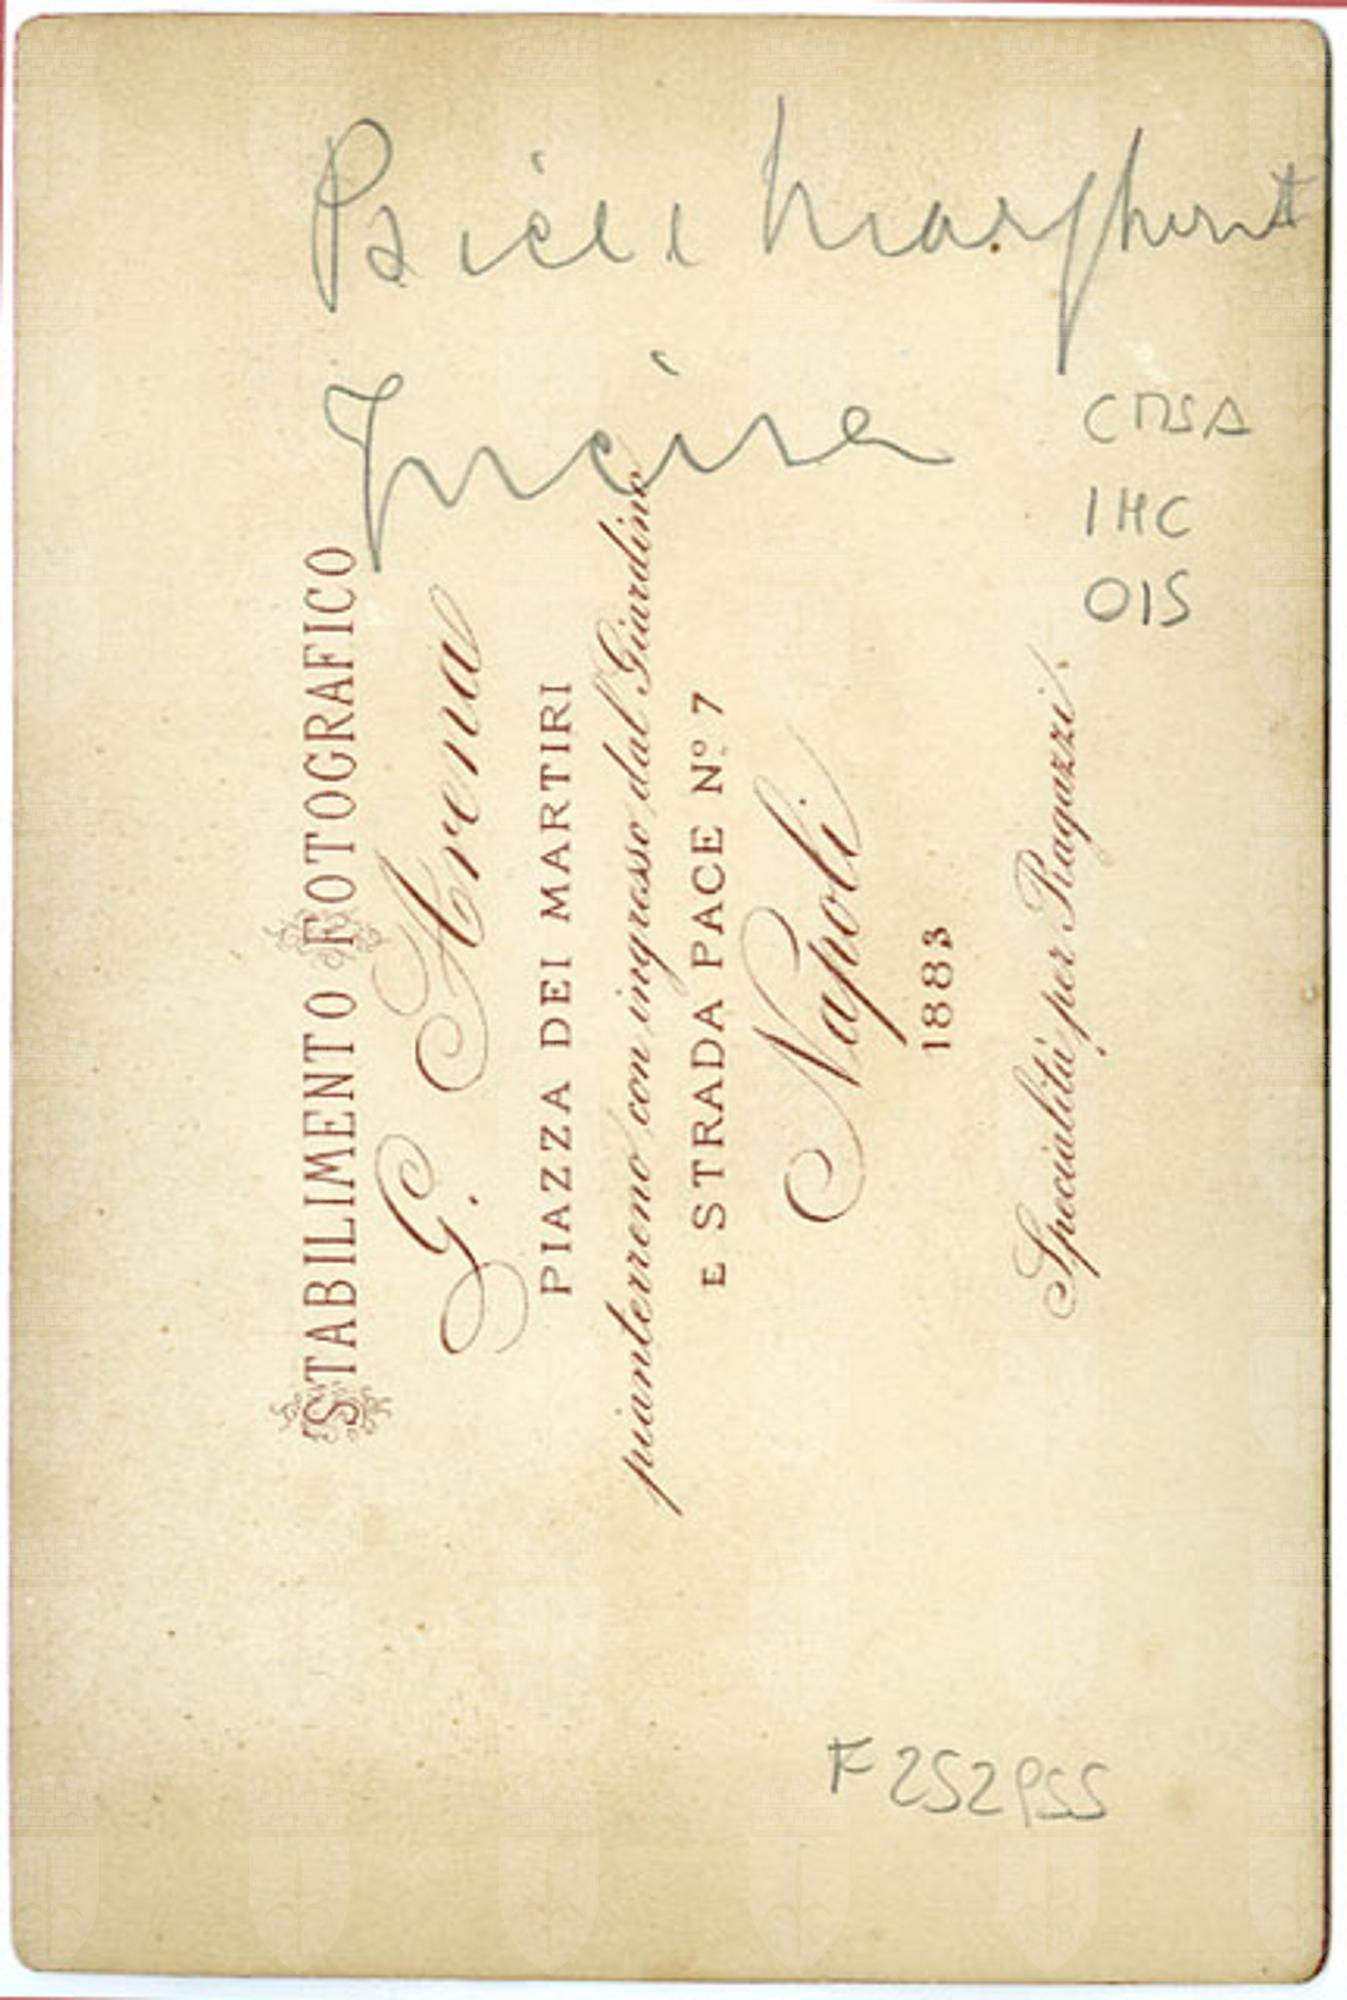 Bice e Margherita
Incisa
CMSA
IHC
015
STABILIMENTO FOTOGRAFICO
G. Arena
PIAZZA DEI MARTIRI
pianterreno con ingresso dal Giardino
E STRADA PACE Nº 7
Napoli
1883
Specialità per Ragazzi
F252PSS